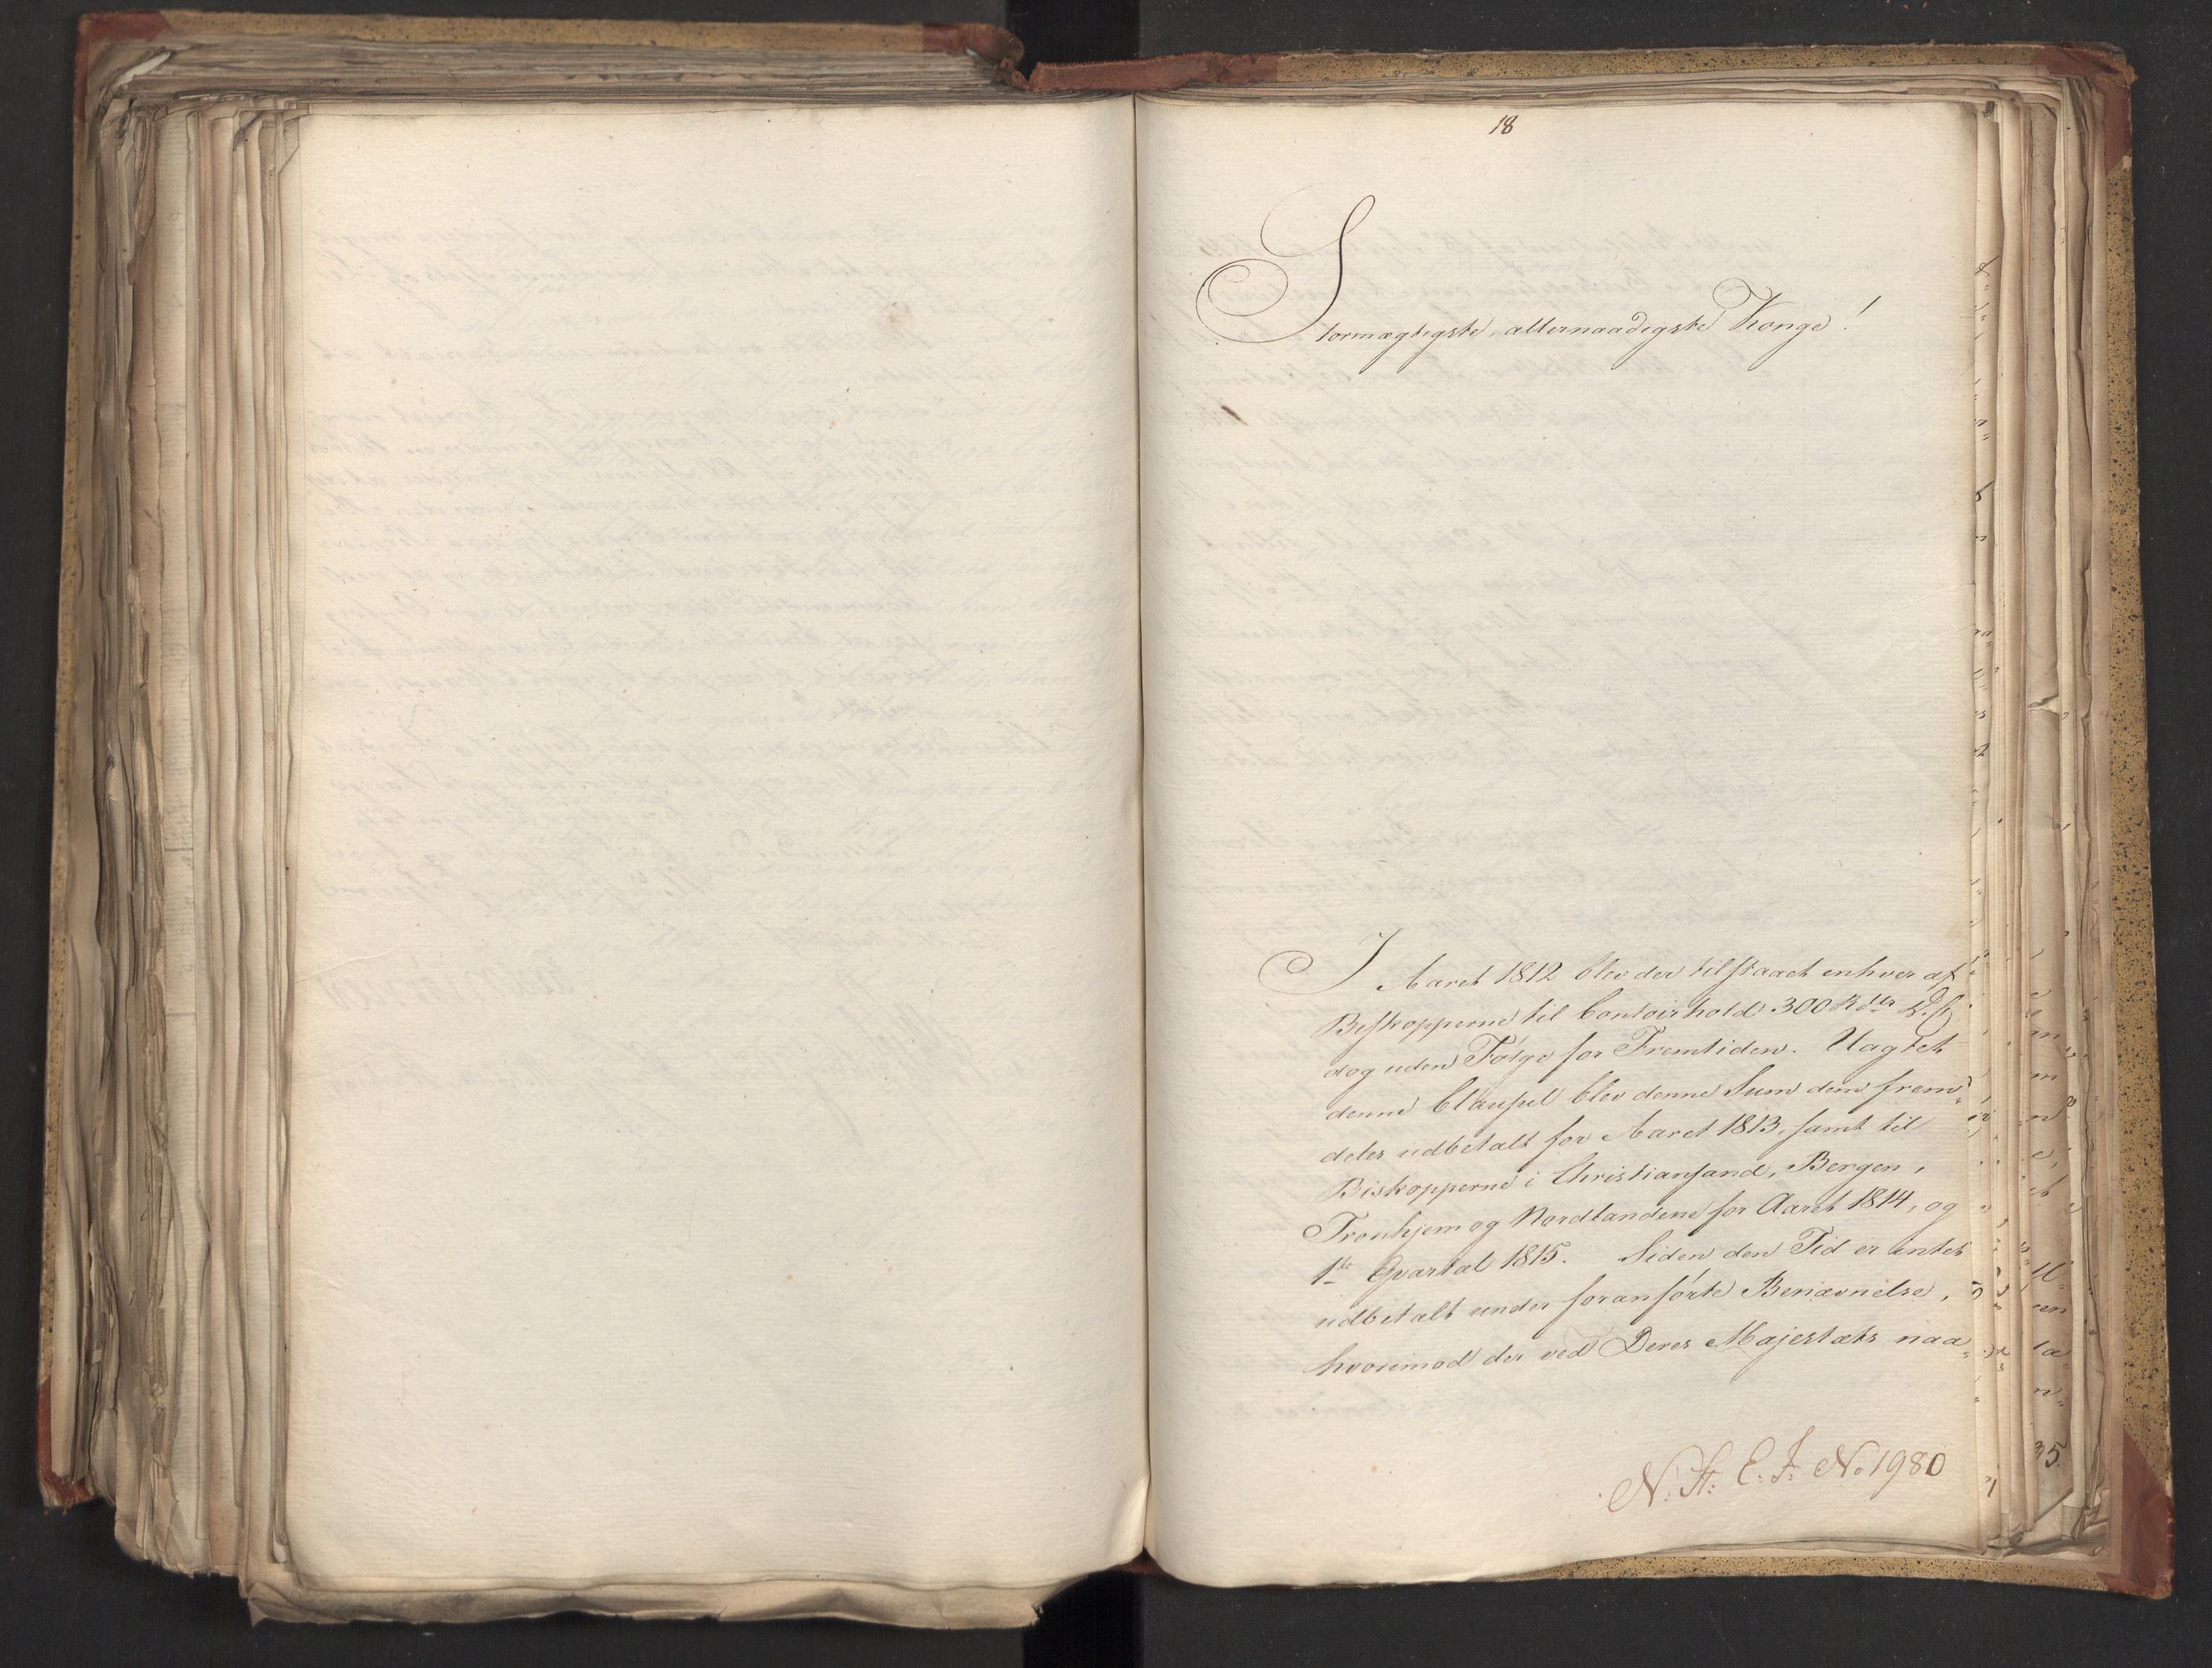 18
Stormægtigste, allernaadigste Konge!
I Aaret 1812 blev der tilstaaet enhver af
Biskopperne til Contoirhold 300 Rdlr D.C.
dog uden Følge for Fremtiden. Uagtet
denne Clausul blev denne Sum dem frem-
deles udbetalt for Aaret 1813, samt til
Biskopperne i Christiansand, Bergen,
Tronhjem og Nordlandene for Aaret 1814, og
1ste Qvartal 1815. Siden den Tid er intet
udbetalt under foranførte Benævnelse,
hvorimod der ved Deres Majestæts naa-
N: St: E: J: No 1980